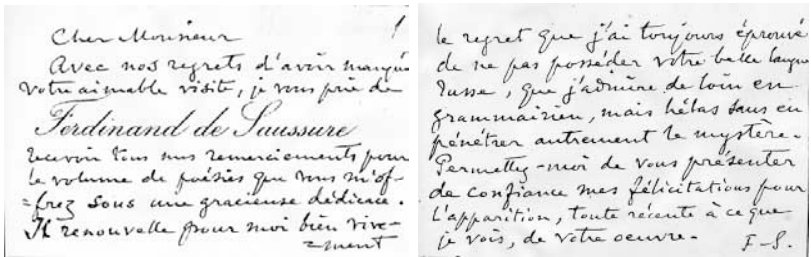 Cher Monsieur
Avec nos regrets d'avoir manqué
votre aimable visite, je vous prie de
Ferdinand de Saussure
recevoir tous mes remerciements pour
le volume de poésies que vous m'of-
=frez sous une gracieuse dédicace.
Il renouvelle pour moi bien vive-
=ment
le regret que j'ai toujours éprouvé
de ne pas posséder votre belle langue
russe, que j'admire de loin en
grammairien, mais hélas sans en
pénétrer autrement le mystère.
Permettez-moi de vous présenter
de confiance mes félicitations pour
l'apparition, toute récente à ce que
je vois, de votre oeuvre.
F.-S.